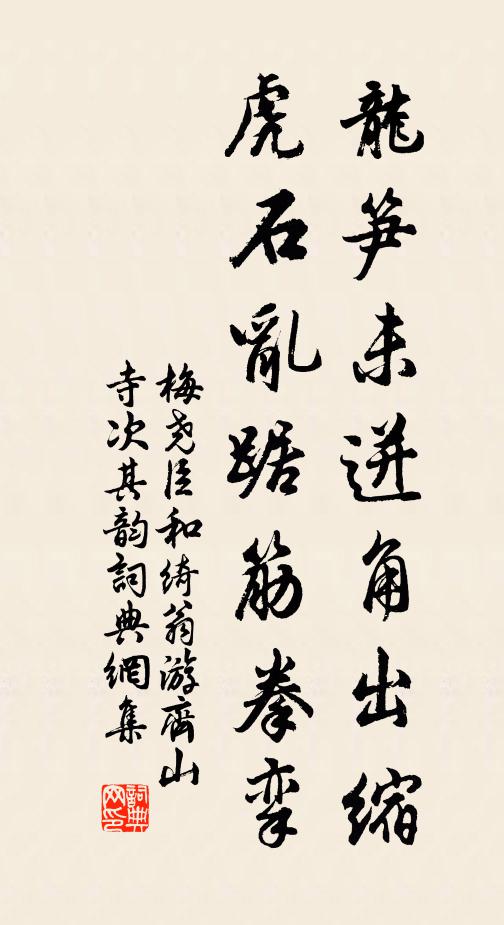 龍笋未迸角出縮
虎石亂踞筋拳挛
梅尧臣和绮翁游齊山
寺次其韵詞典網集
詞典
网印